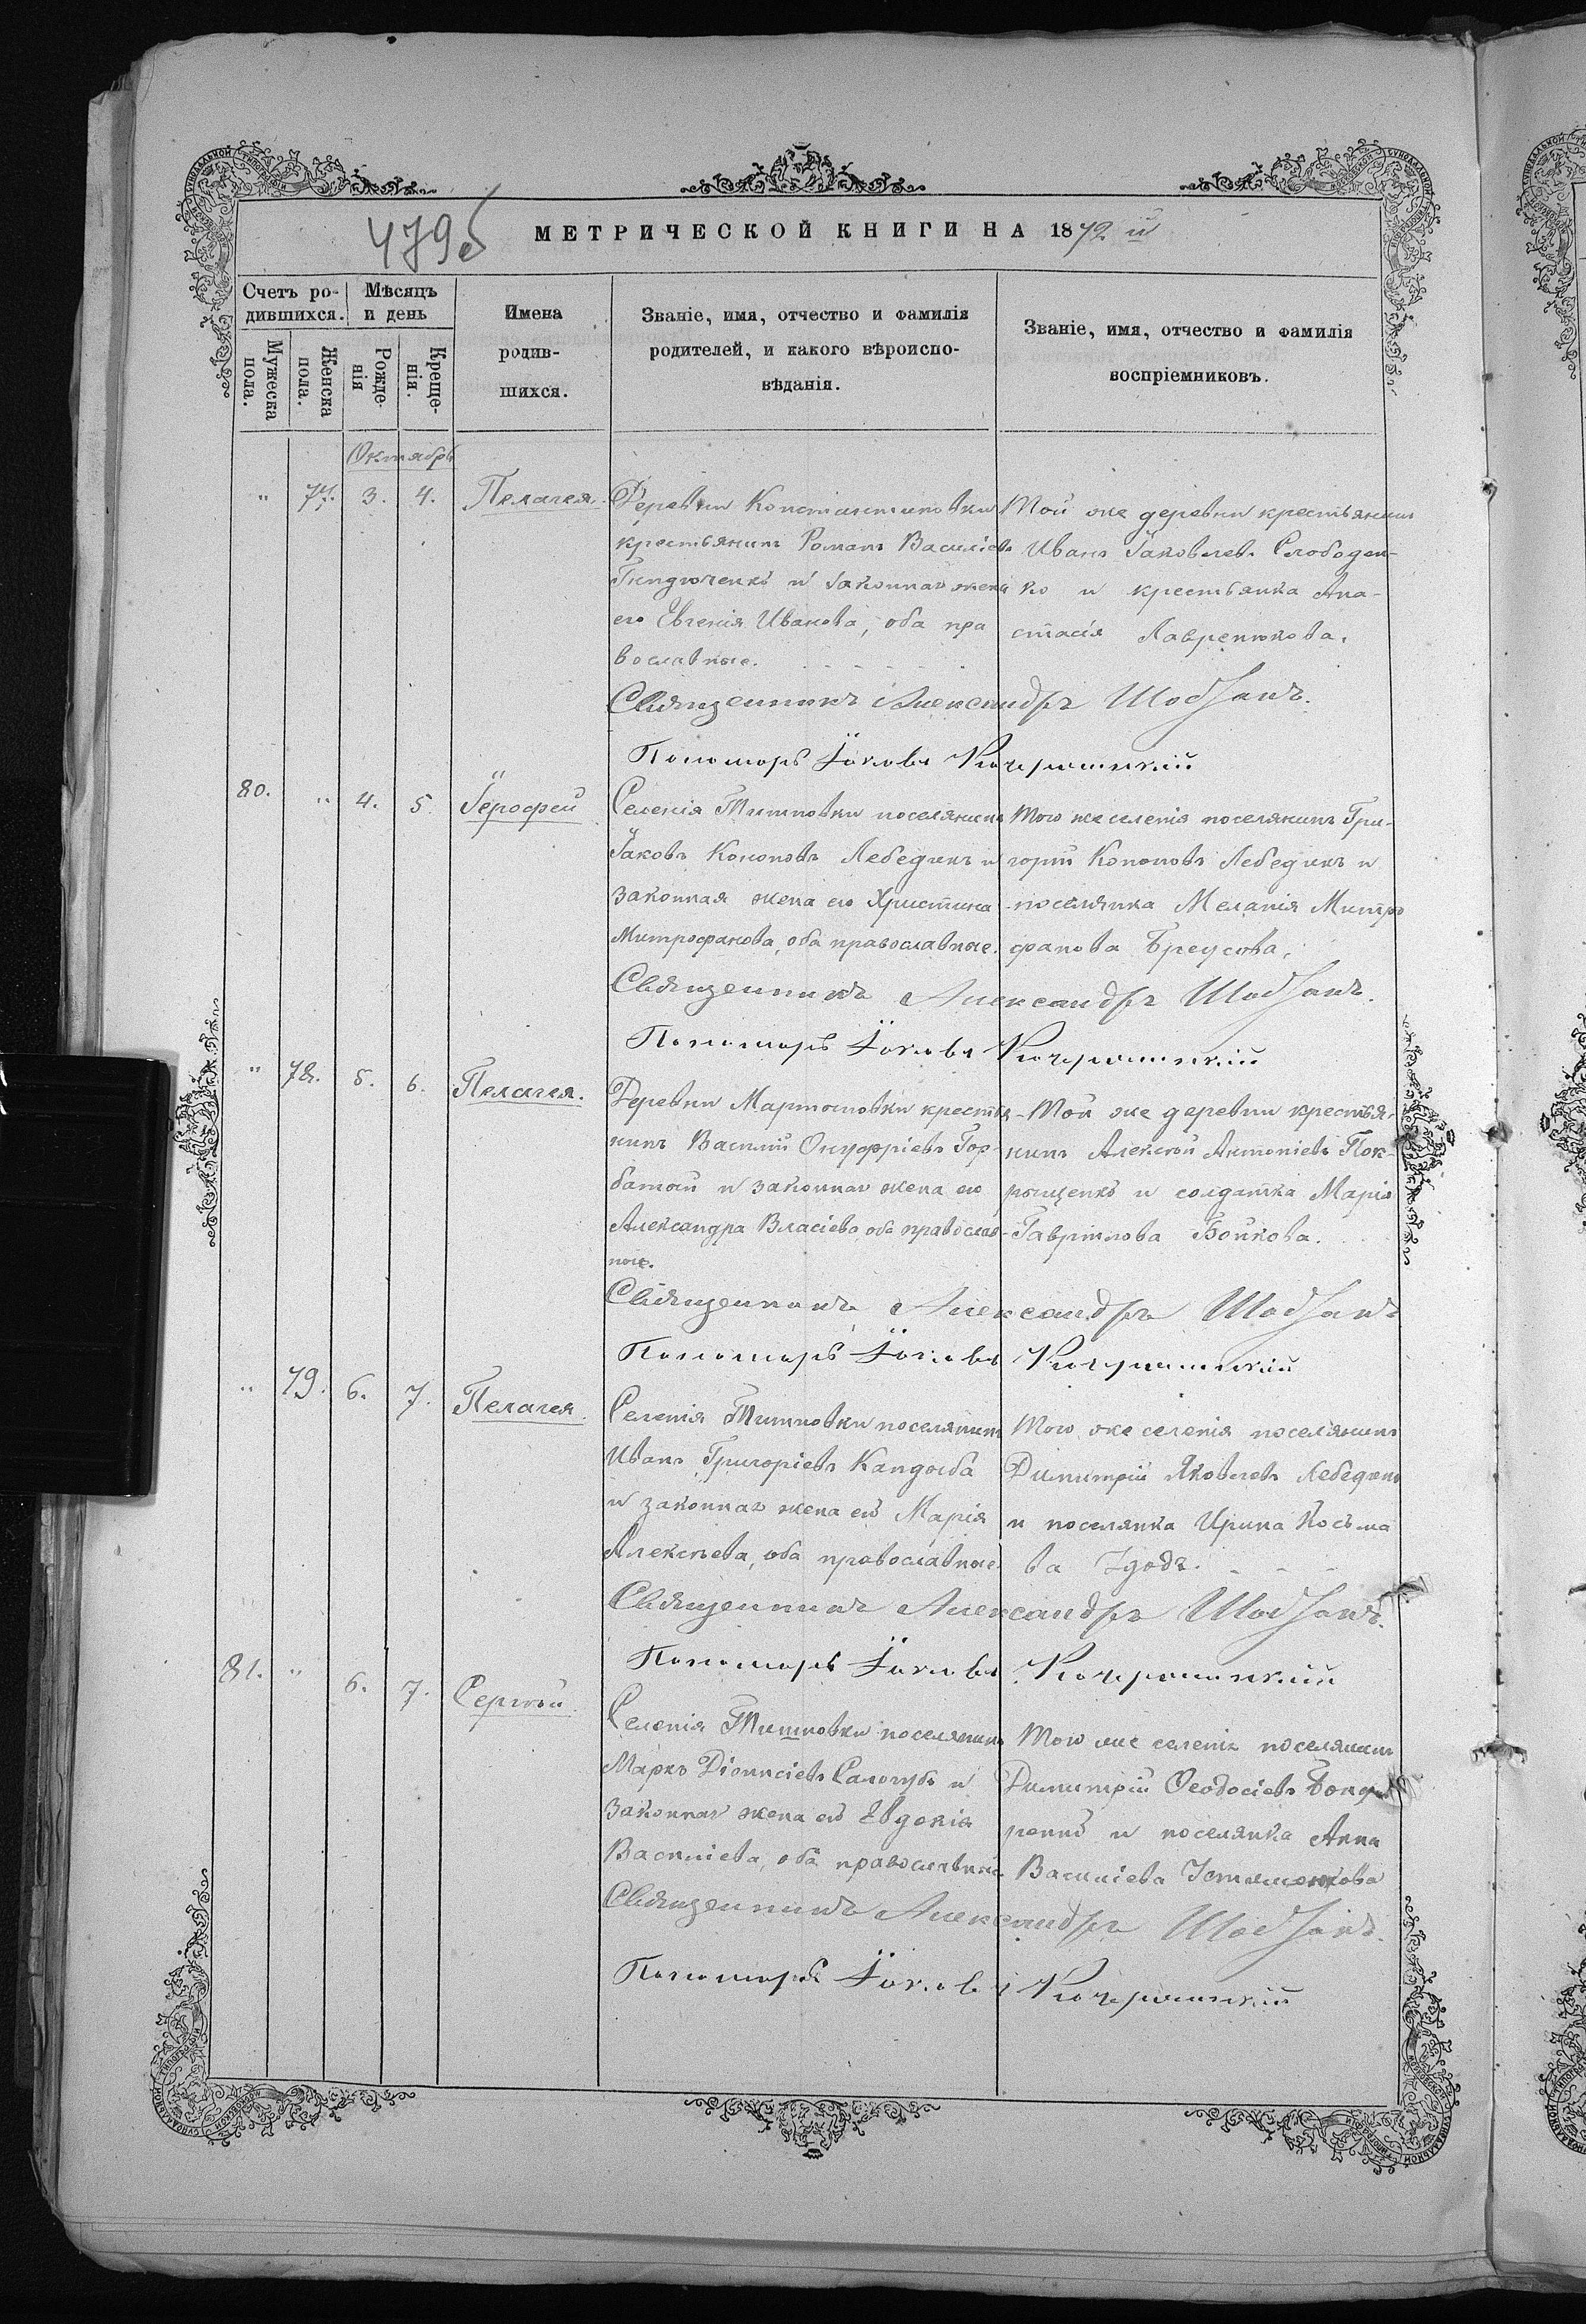 479б
МЕТРИЧЕСКОЙ КНИГИ НА 1872 й
Счетъ родившихся.
Мѣсяцъ и день
Имена родившихся.
Званіе, имя, отчество и фамилія родителей, и какого вѣроисповѣданія.
Званіе, имя, отчество и фамилія воспріемниковъ.
Мужеска пола.
Женска пола.
Рожденія
Крещенія.
Октябрь
" 77. 3. 4. Пелагея.
Деревни Константиновки
крестьянинъ Романъ Василіевъ
и законная жена
его Евгенія Иванова, оба пра
вославные.
Той же деревни крестьянинъ
Иванъ Іаковлевъ Слободен-
ко и крестьянка Ана-
стасія Лавренюкова.
Священникъ Александръ
Пономарь Іаковъ
80. " 4. 5. Іерофей
Селенія Тишковки поселянинъ
Іаковъ Кононовъ Лебединъ и
законная жена его Христина
Митрофанова, оба православные.
Того же селенія поселянинъ Гри-
горій Кононовъ Лебединъ и
поселянка Меланія Митро
фанова Бреусова.
Священникъ Александръ
Пономарь Іаковъ
" 78. 5. 6. Пелагея.
Деревни Мартоновки крестья-
нинъ Василій Онуфріевъ Гор-
батый и законная жена его
Александра Власіева, оба православ-
ные.
Той же деревни крестья-
нинъ Алексѣй Антоніевъ Пок-
рищенко и солдатка Марія
Гавріилова Бойкова.
Священникъ Александръ
Пономарь Іаковъ
" 79. 6. 7. Пелагея.
Селенія Тишковки поселянинъ
Иванъ Григоріевъ Кандыба
и законная жена его Марія
Алексѣева, оба православные.
Того же селенія поселянинъ
Димитрій Яковлевъ Лебединъ
и поселянка Ирина Косьма
ва
Священникъ Александръ
Пономарь Іаковъ
81. " 6. 7. Сергѣй
Селенія Тишковки поселянинъ
Маркъ Діонисіевъ Салогубъ и
законная жена его Евдокія
Василіева, оба православные
Того же селенія поселянинъ
Димитрій Ѳеодосіевъ Бонда
ренко и поселянка Анна
Василіева
Священникъ Александръ
Пономарь Іаковъ